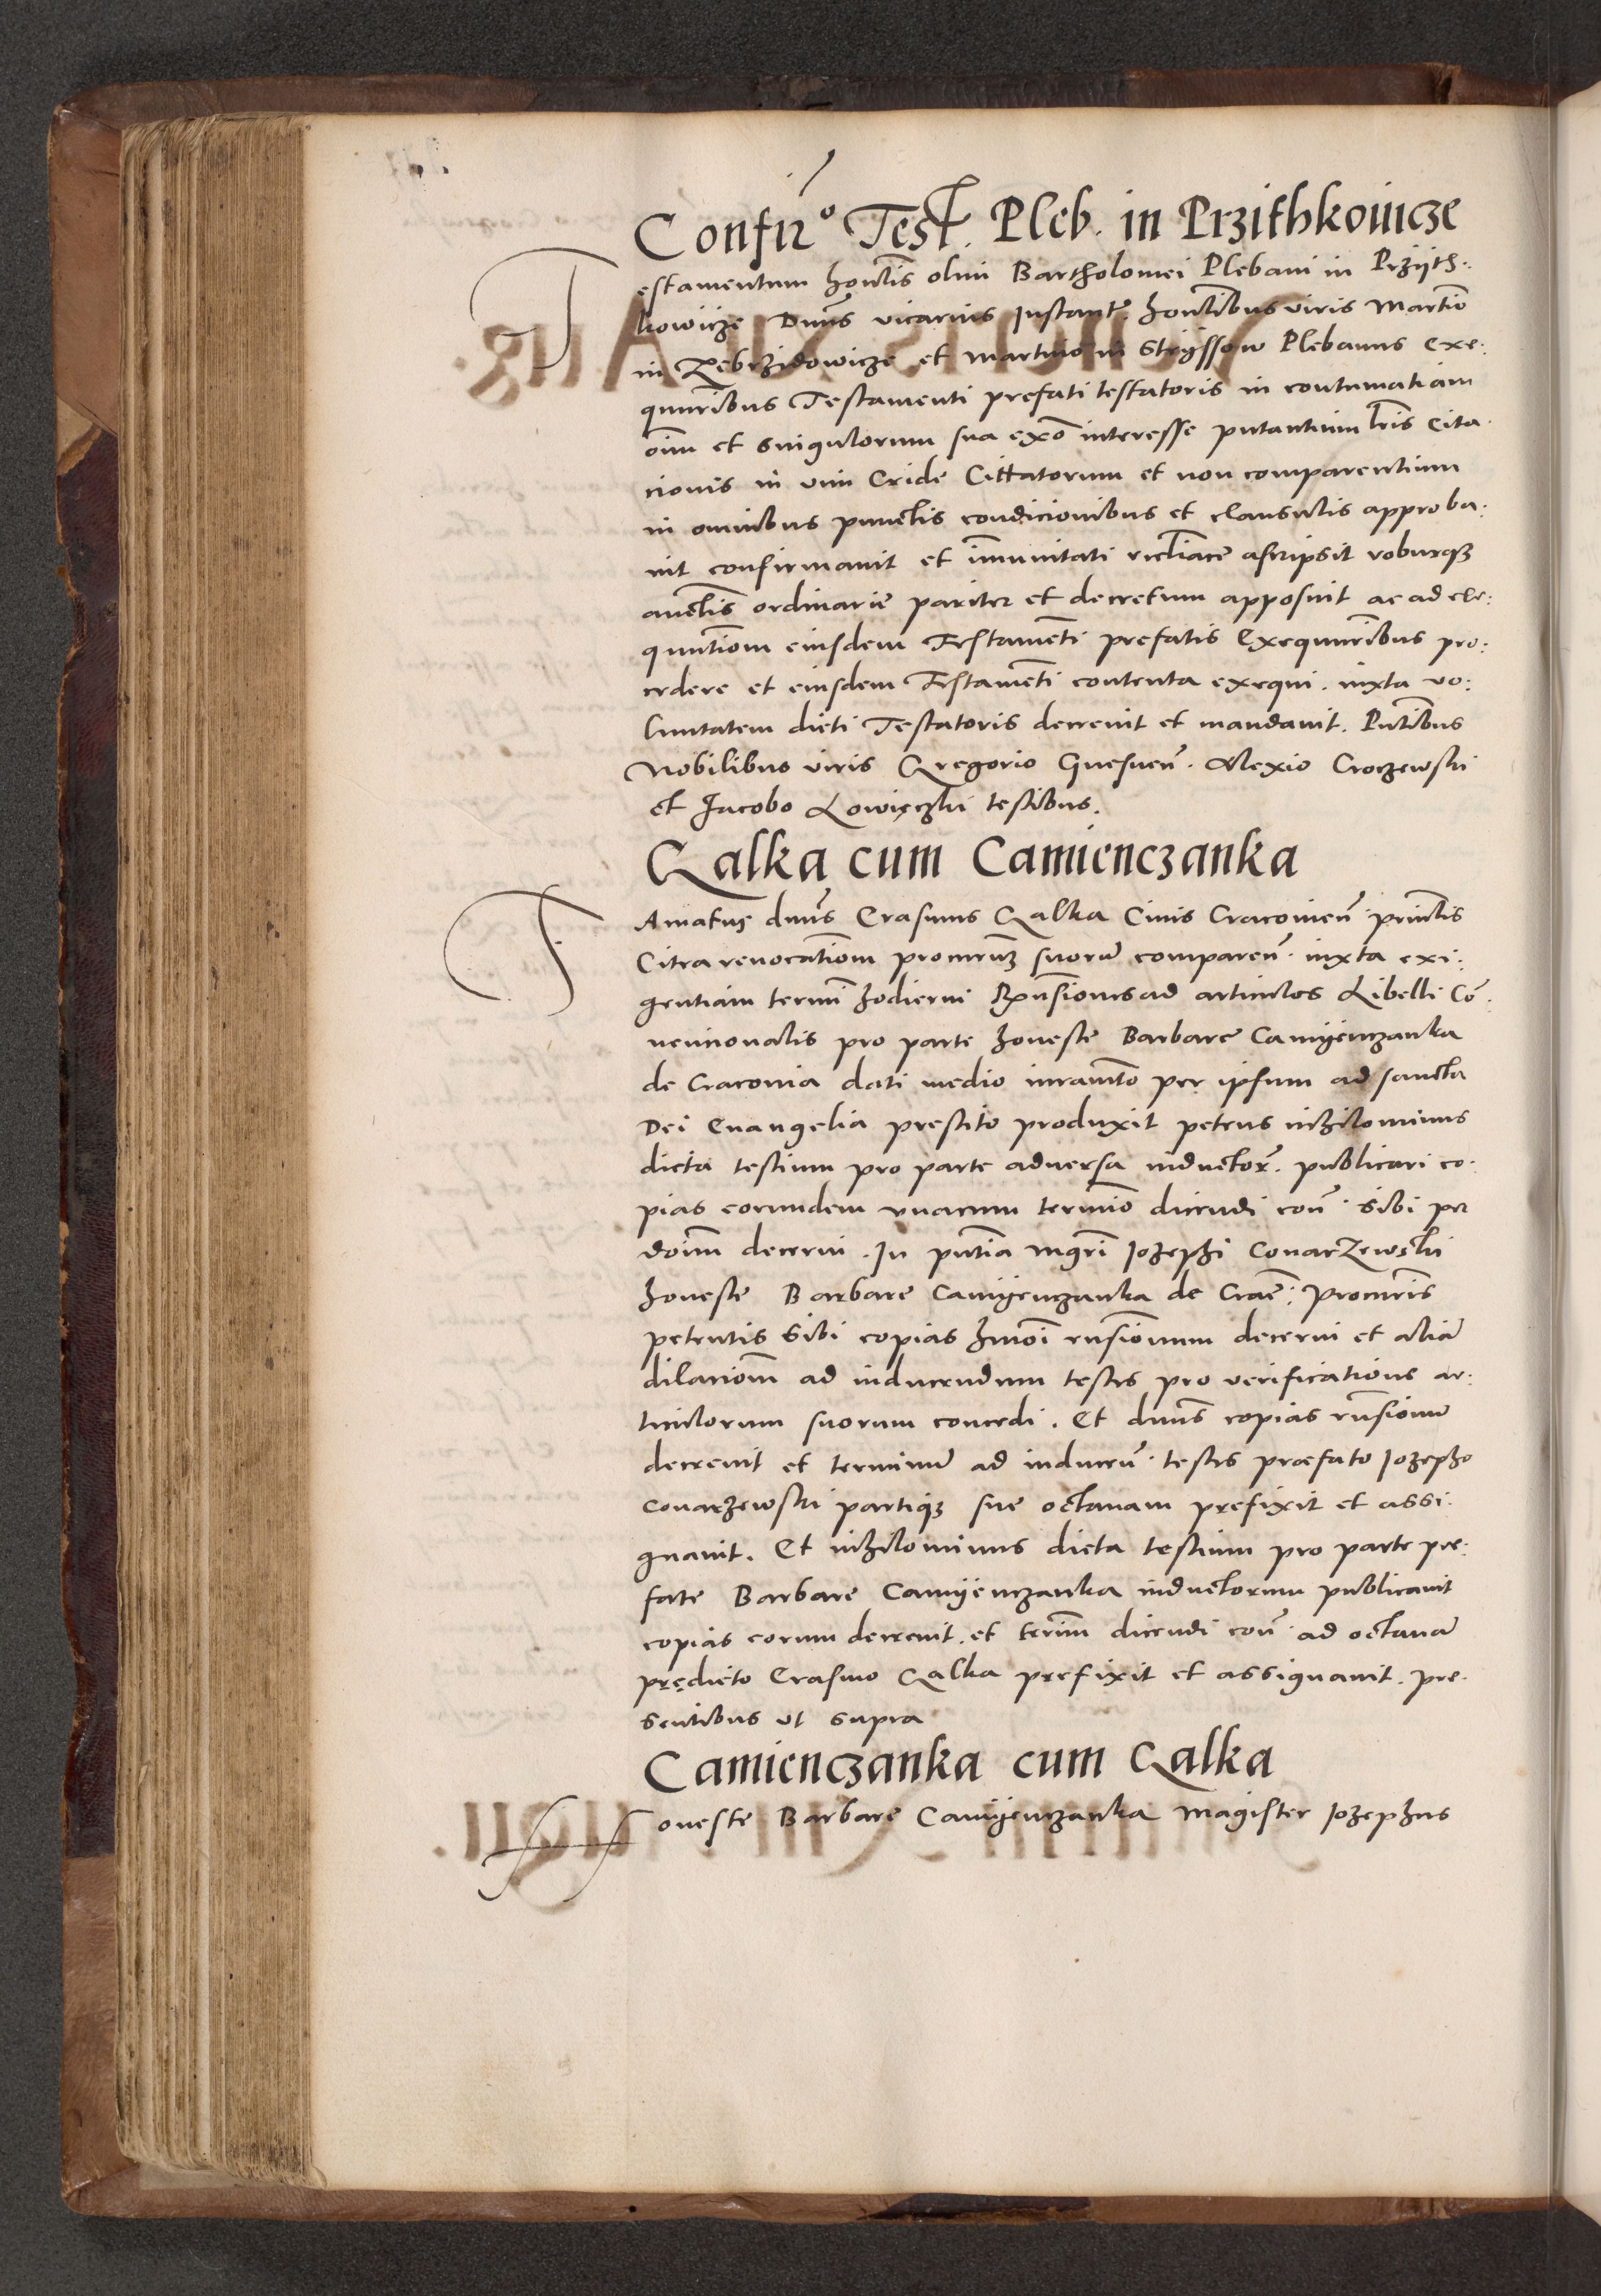 Confir͛o Test. Pleb. in Przithkowicze
Testamentum hon̄lis olim Bartholomei Plebani in Przijth:
kowicze Dn̄us vicarius Instantē hon̄libus viris Martino
in Zebrzidowicze et Martino in Strijssow Plebanus exe:
qunr̄ibus Testamenti prefati testatoris in contumatiam
oīm et singulorum sua exō interesse putantium lr̄is Cita
cionis in vim Cride Cittatorum et non comparentium
in omnibus punctis condicionibus et clausulis approba:
uit confirmauit et īmunitati asscripsit roburqꝫ
auctīs ordinarie pariter et decretum apposuit ac ad exe:
qunt̄iom eiusdem Testamēti prefatis Exequnr̄ibus pro:
cedere et eiusdem Testamēti contenta exequi iuxta vo:
luntatem dicti Testatoris decreuit et mandauit. Pn̄tibus
Nobilibus viris Gregorio Gnesneñ. Alexio Croczewski
et Jacobo Lowięczki testibus.
Galka cum Camienczanka
Famatus dn̄us Erasmus Galka Ciuis Cracouieñ princlīs
Citra reuocatīonm procur̄uꝫ suorū compareñ. iuxta exi:
gentiam termī hodierni Rn̄siones ad articulos Libelli Cō
uencionalis pro parte honeste Barbare Camijenczanka
de Cracouia dati medio iuramēto per ipsum ad sancta
Dei Euangelia prestito produxit petens nihilominus
dicta testium pro parte aduersa inductor̄. publicari co:
pias eorundem vnacum termīo dicendi coñ. sibi per
doīm decerni. In pn̄tia mgr̄i Iozephi Conarzewski
honeste Barbare Camijenczanka de Crac̄: procur̄is
petentis sibi copias hmōi rn̄sionum decerni et aliā
dilacionm̄ ad inducendum testes pro verificatione ar:
ticulorum suorum concedi. Et dn̄us copias rn̄sionū
decreuit et terminū ad inducen̄. testes præfato Iozepho
Conarzewski partiqꝫ sue octauam prefixit et assi:
gnauit. Et nihilominus dicta testium pro parte pre:
fate Barbare Camijenczanka inductorum publicauit
copias eorum decreuit. et ter̄im dicendi coñ. ad octauā
prędicto Erasmo Galka prefixit et assignauit. pre:
sentibus vt supra
Camienczanka cum Galka
Honeste Barbare Camijenczanka Magister Iozephus